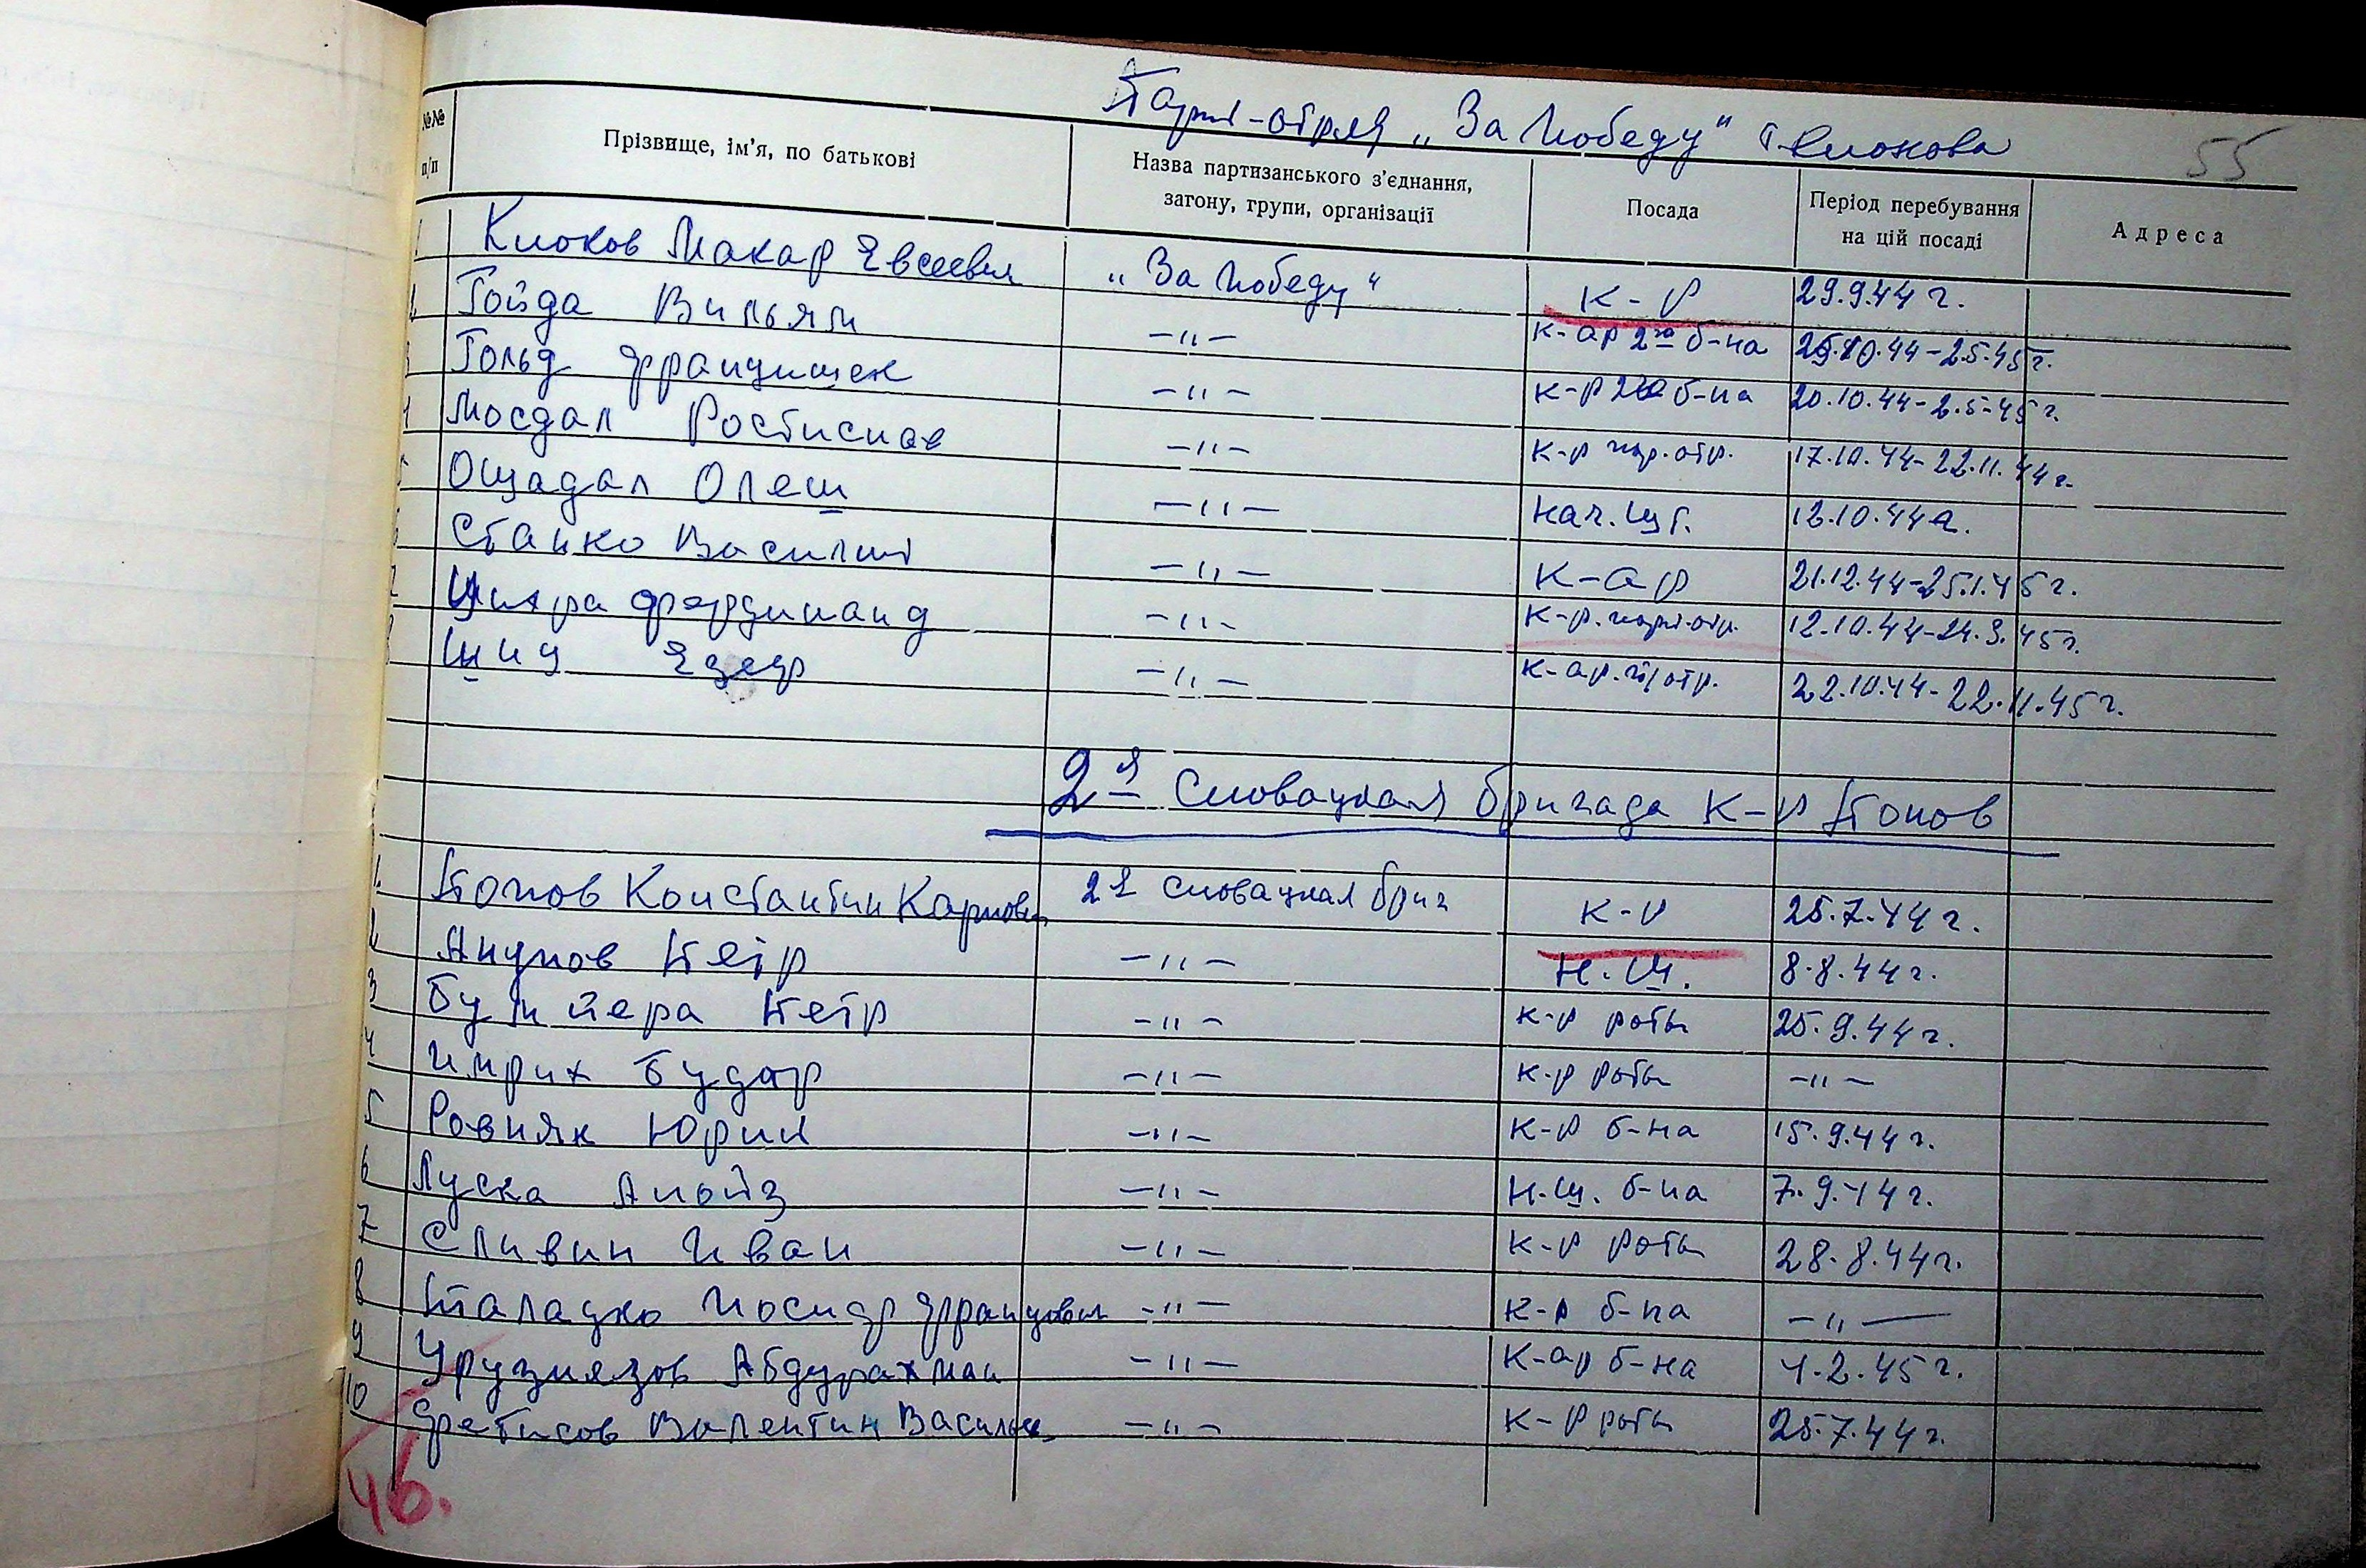 Парт-отряд „За Победу" т. Клокова
55
№№ п/п Прізвище, ім'я, по батькові Назва партизанського з'єднання, загону, групи, організації Посада Період перебування на цій посаді Адреса
1 Клоков Макар Евсеевич „За Победу" к-р 29.9.44 г.
2 Гойда Вильям —"— к-ар 2го б-на 10.44-2.5.45 г.
3 Гольд Францишек —"— к-р б-на 20.10.44-2.5-45 г.
4 Мосдал Ростислав —"— к-р пар.отр. 17.10.44-22.11.44 г.
5 Ощадал Олеш —"— нач. шт. 12.10.44 г.
6 Станко Василий —"— к-ар 21.12.44-25.1.45 г.
7 Цихра Фердинанд —"— к-р. парт.отр. 12.10.44-24.3.45 г.
8 Шид —"— к-ар. п/отр. 22.10.44-22.11.45 г.
2я Словацкая бригада к-р Попов
1. Попов Константин Карпович 2я словацкая бриг к-р 25.7.44 г.
2 Анупов Петр —"— Н.Ш. 8.8.44 г.
3 Петр —"— к-р роты 25.9.44 г.
4 Имрих —"— к-р роты —"—
5 Ровняк Юрий —"— к-р б-на 15.9.44 г.
6 Луска Алойз —"— Н.Ш. б-на 7.9.44 г.
7 Сливин Иван —"— к-р роты 28.8.44 г.
8 Палацко Иосиф Францович —"— к-р б-на —"—
9 Урузиязов Абдурахман —"— к-ар б-на 4.2.45 г.
10 Фетисов Валентин Василье —"— к-р роты 25.7.44 г.
46.